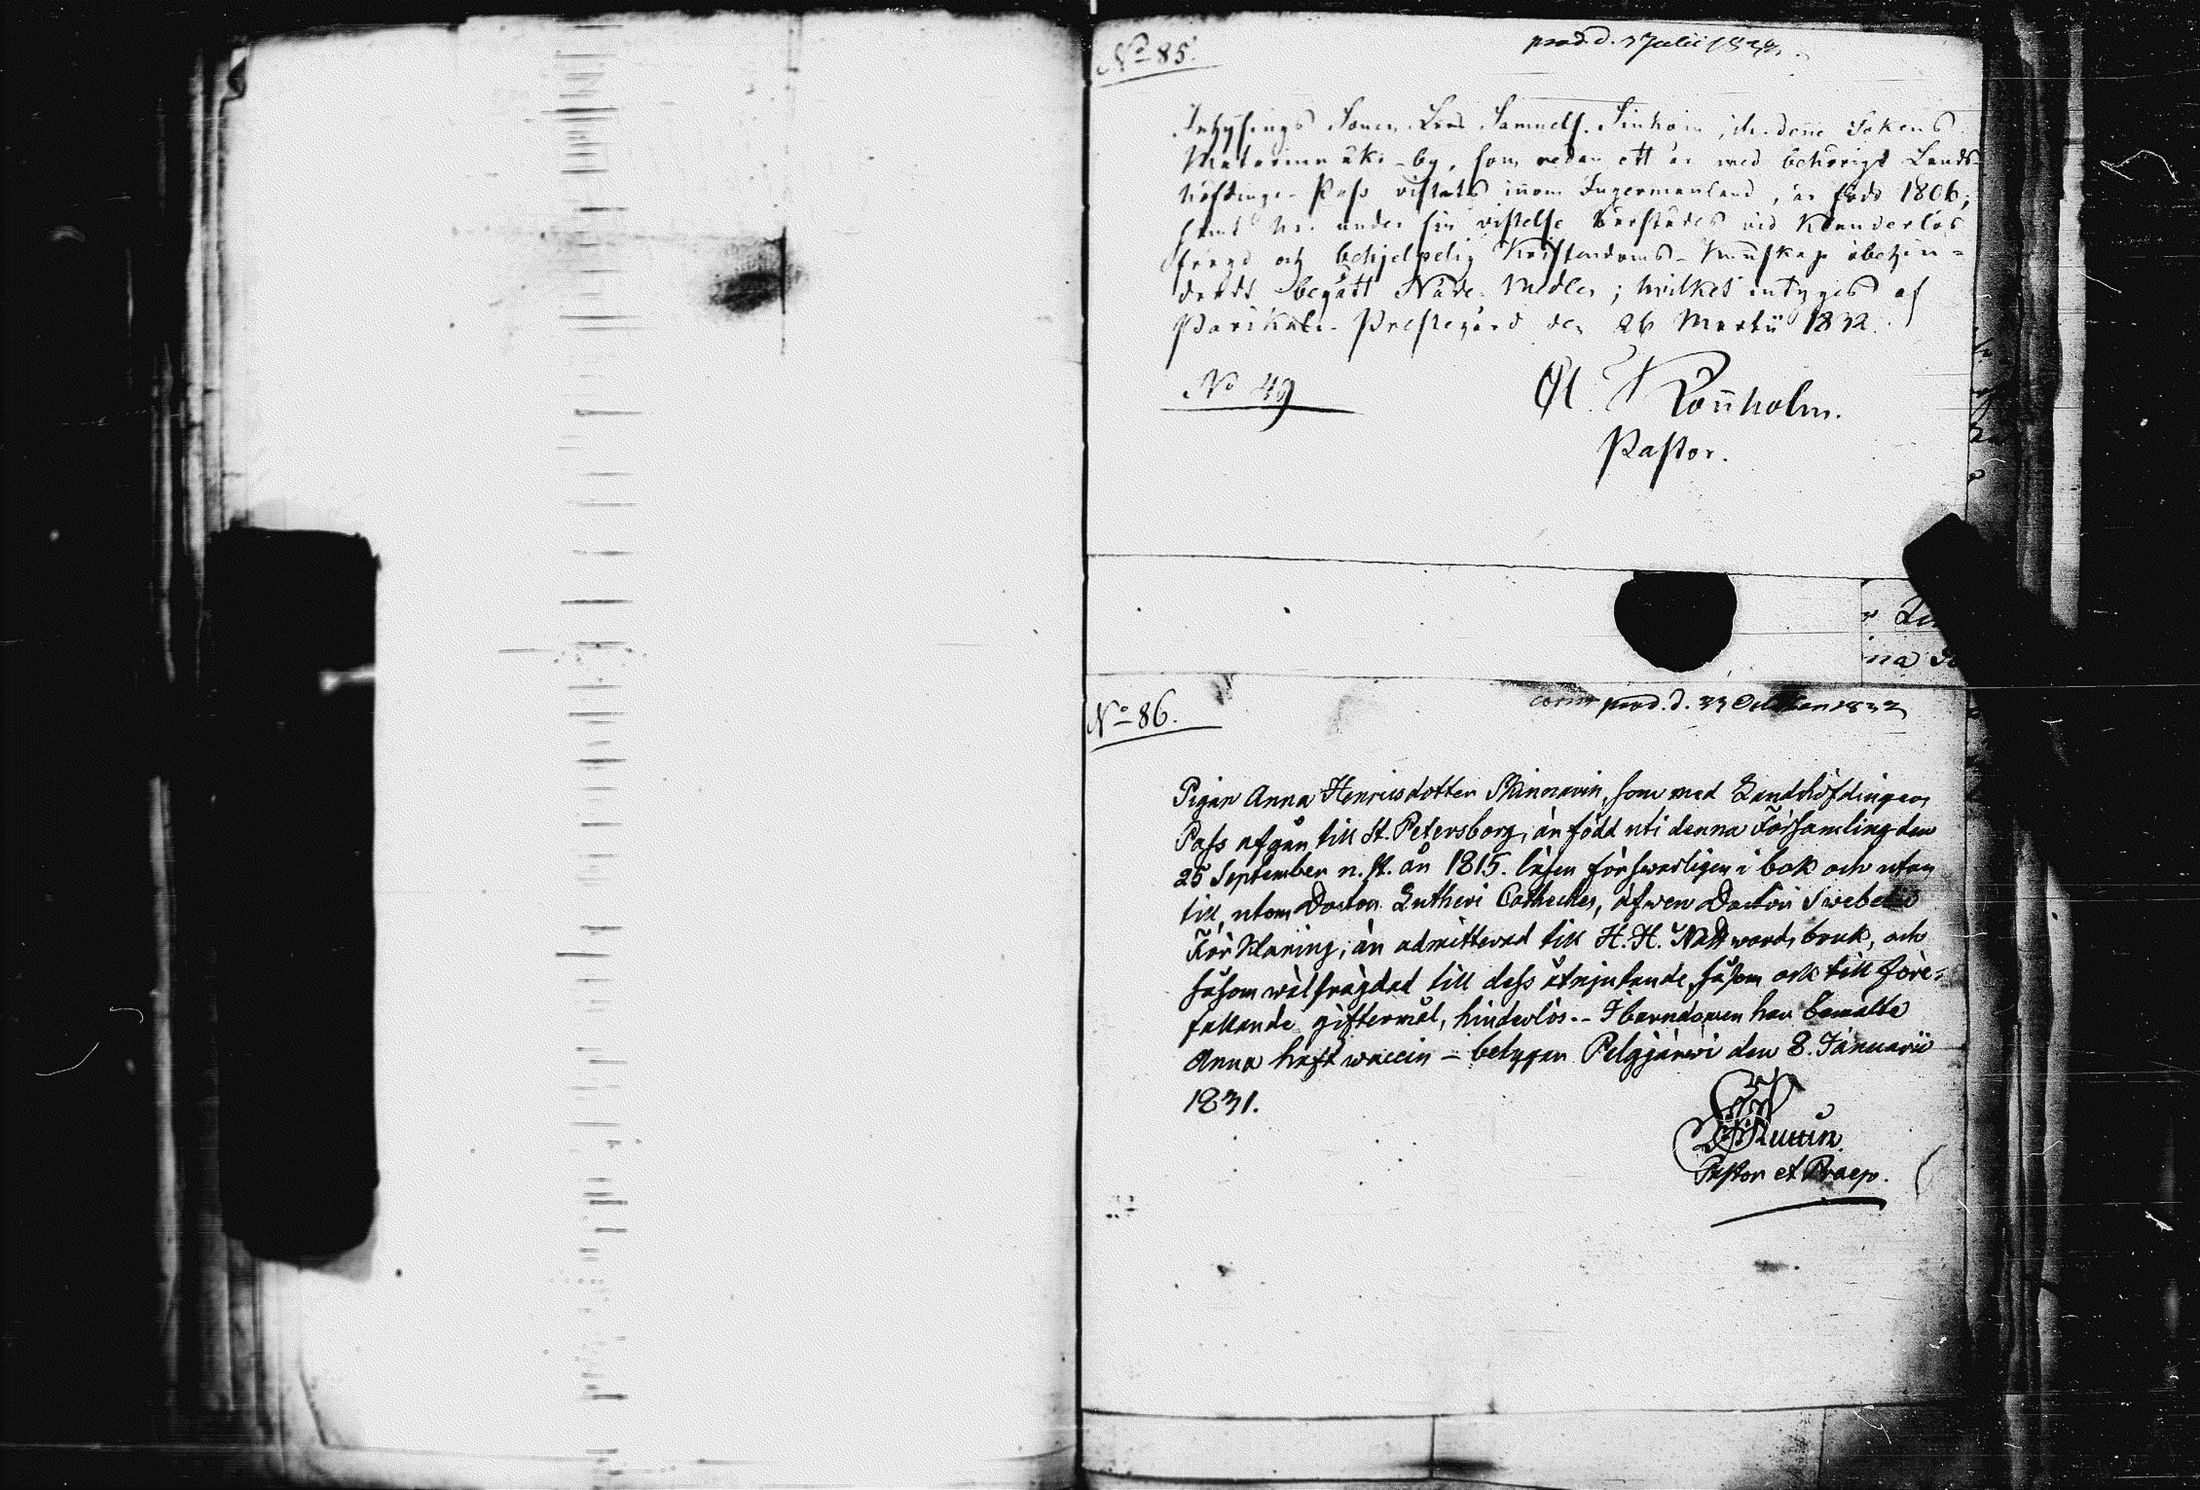 No 85.
prod. d. 7 Julii 1832.
Inhysings Sonen Lars Samuelss. Sinkoin, ifr. denne Sokens
Matorinmäki-by, som redan ett år med behörigt Lands-
höfdinge-Pass vistats inom Ingermanland, är född 1806;
samt har under sin vistelse härstädes vid klanderlös
frägd och behjelpelig Kristendoms-kunskap obehin-
dradt begått Nåde-Medlen; hvilket intygas af
Parikala-Prestegård den 26 Martii 1832.
No 49
Lönnholm.
Pastor.
No 86.
prod. d. October 1832
Pigan Anna Henricsdotter som med Landshöfdinge
Pass afgår till St. Petersborg, är född uti denna Församling den
25 September n. st. år 1815. läser försvarligen i bok och utan
till, utom Doctor Lutheri Catheches, äfwen Doctor Swebelii
Förklaring; är admitterad till H. H. Nattwards bruk, och
såsom wälfrägdad till dess åtnjutande, såsom ock till före-
fallande giftermål, hinderlös.- I barndomen har bemälte
Anna haft waccin - betygar Pelgjärwi den 8. Januarii
1831.
Pastor et Praep.